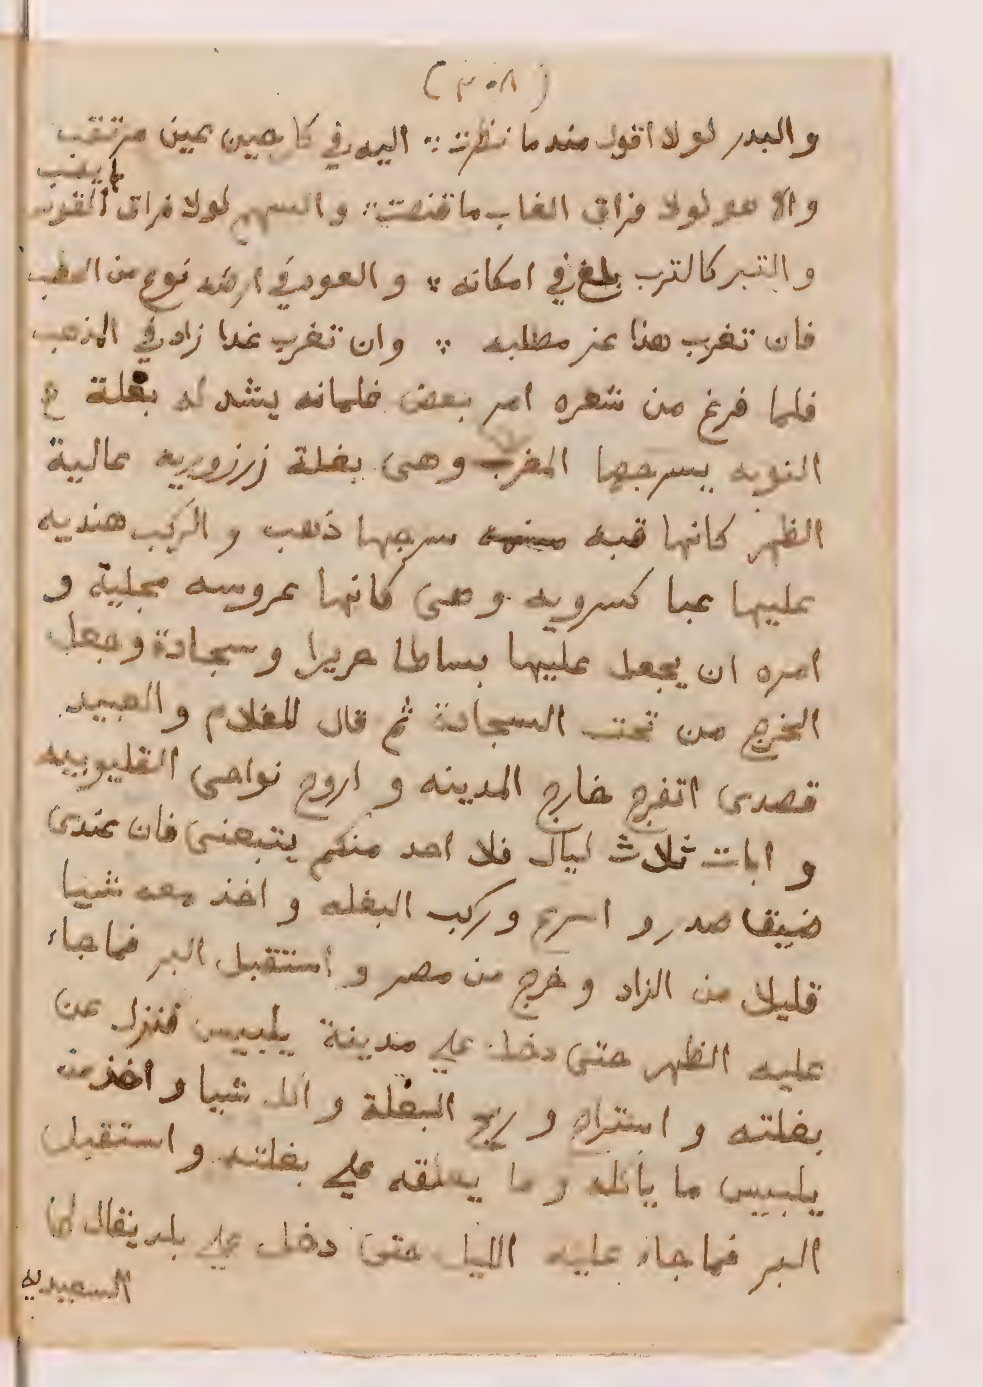 (٣٠٨)
والبدر لولا افول منه ما نظرت ∴ اليه في كل حين عين مرتقب
والاسد لولا فراق الغاب ما قنصت ∴ والسهم لولا فراق القوس
لم يصب
والتبر كالترب بلغ في امكانه ∴ والعود في ارضه نوع من الحطب
فان تغرب هذا عز مطلبه ∴ وان تغرب غدا زاد في الذهب
فلما فرغ من شعره امر بعض غلمانه يشد له بغلة
النوبه بسرجها المغرب وهى بغلة زرزوريه عالية
الظهر كانها قبه سرجها ذهب والركب هنديه
عليها عبا كسرويه وهى كانها عروسه مجلية و
امره ان يجعل عليها بساطا حريرا وسجادة وجعل
الخرج من تحت السجادة ثم قال للغلام والعبيد
قصدى اتفرج خارج المدينه واروح نواحى القليوبيه
وابات ثلاث ليال فلا احد منكم يتبعنى فان عندى
ضيقا صدر واسرع وركب البغله واخذ معه شيا
قليلا من الزاد وخرج من مصر واستقبل البر فما جاء
عليه الظهر حتى دخل على مدينة بلبيس فنزل عن
بغلته واستراح وريح البغلة واكل شيا واخذ من
بلبيس ما ياكله وما يعلقه على بغلته واستقبل
البر فما جاء عليه الليل حتى دخل على بلد يقال لها
السعيديه